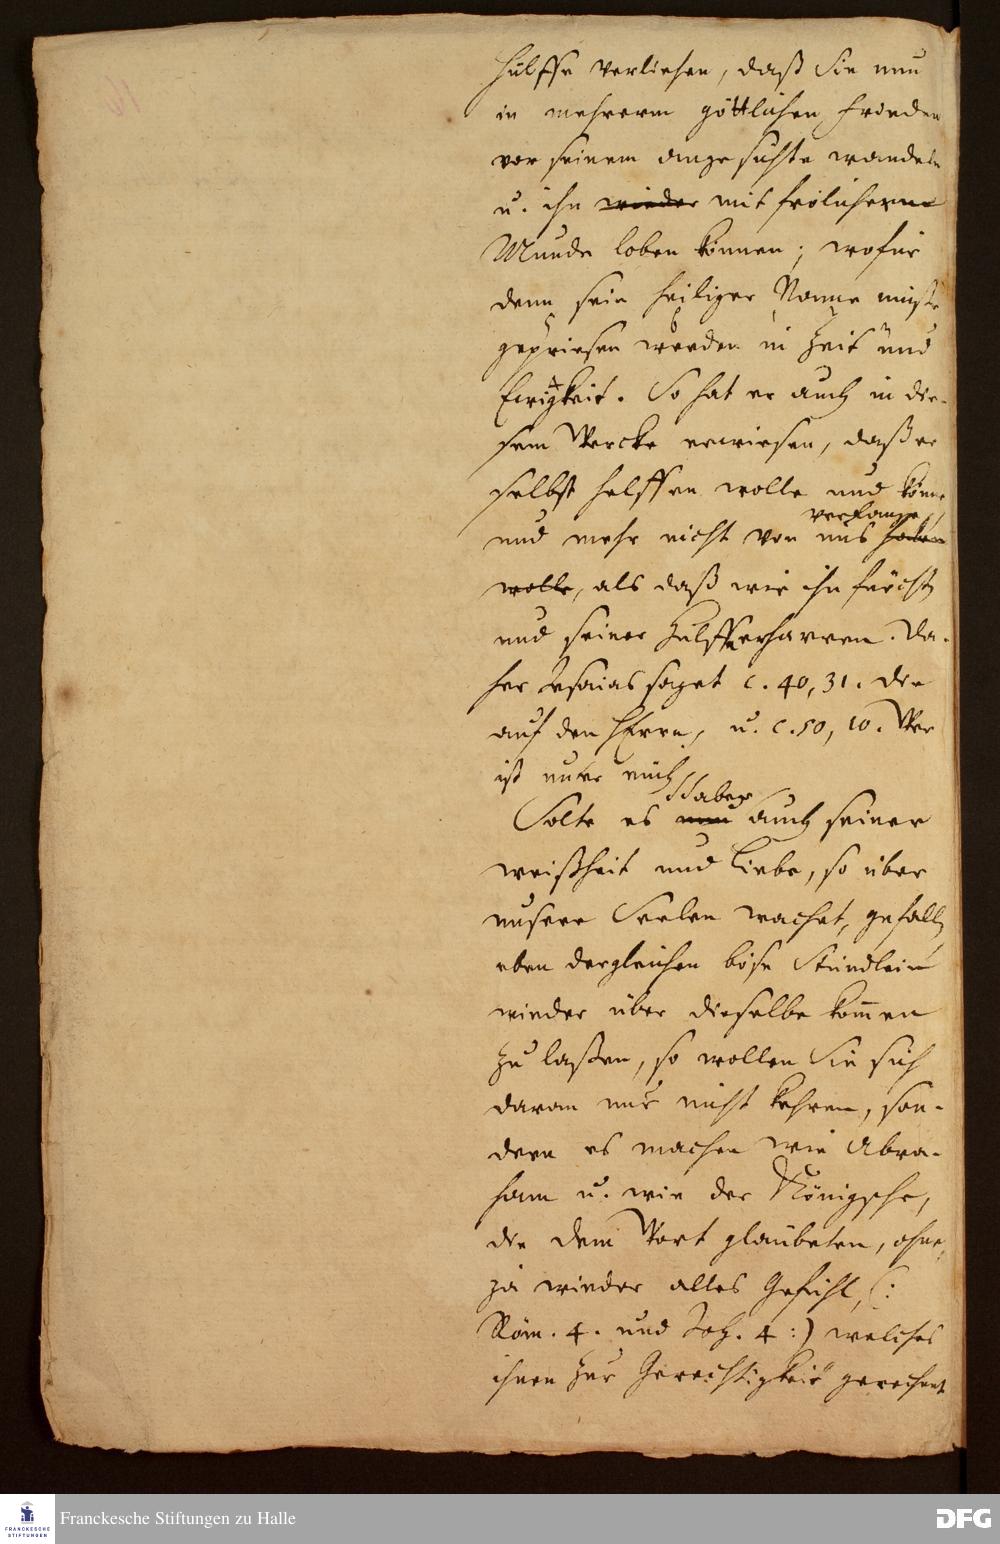 hülffe verliehen, daß Sie nun
in mehrerm göttlichen Frieden
vor seinem angesichte wandeln
u. ihn wieder mit frölicherm
Munde loben können; wofür
denn sein heiliger Name müße
gepriesen werden in Zeit und
Ewigkeit. So hat er auch in die-
sem Wercke erwiesen, daß er
selbst helffen wolle und könne
verlange,
und mehr nicht von uns haben
wolle, als daß wir ihn fürchten
und seiner Hülffe erharren. Da-
her Esaias saget c. 40, 31. die
auf den HErrn, u. c. 50, 10. Wer
ist unter euch
aber
Solte es nun auch seiner
weißheit und Liebe, so über
unsere Seelen wachet, gefallen
eben dergleichen böse Stündlein
wieder über dieselbe kommen
zu laßen, so wollen Sie sich
daran nur nicht kehren, son-
dern es machen wie Abra-
ham u. wie der Königsche,
die dem Wort glaubeten, ohne,
ja wieder alles Gefühl, (:
Röm. 4. und Joh. 4 :) welches
ihnen zur Gerechtigkeit gerechnet
Franckesche Stiftungen zu Halle
FRANCKESCHE
STIFTUNGEN
DFG